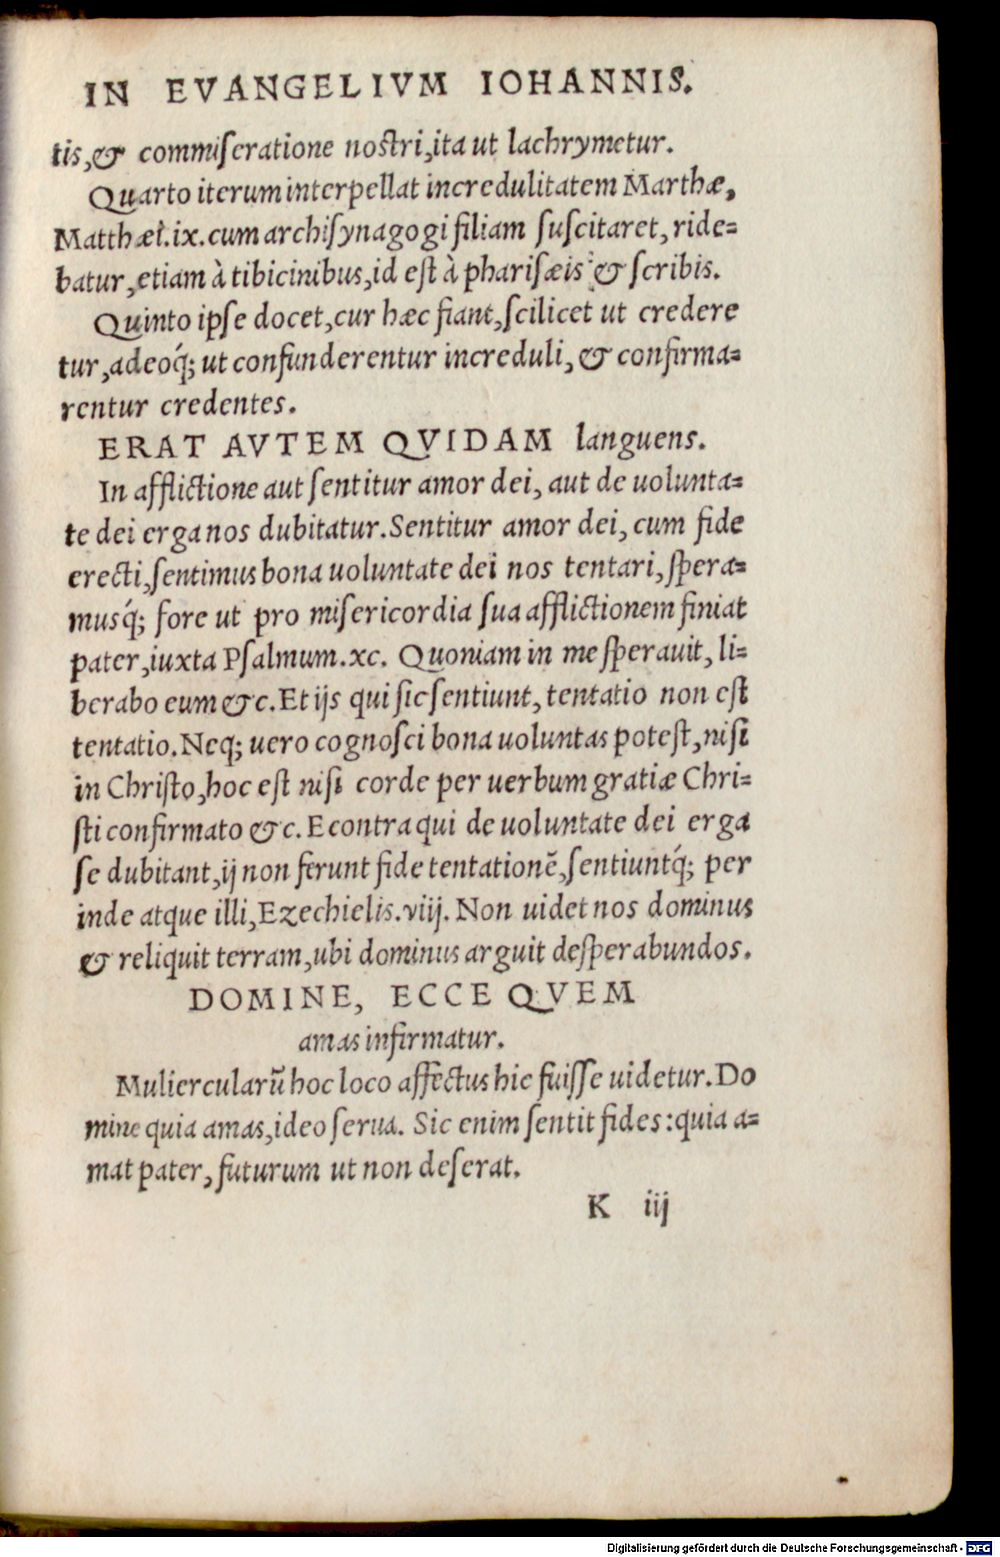 IN EVANGELIVM IOHANNIS.
tis,& commiſeratione noſtri,ita ut lachrymetur.
Quarto iterum interpellat incredulitatem Marthæ,
Matthæi.ix.cum archiſynagogi filiam ſuſcitaret, ride=
batur,etiam à tibicinibus,id eſt à phariſæis & ſcribis.
Quinto ipſe docet,cur hæc fiant,ſcilicet ut credere
tur,adeoq́; ut confunderentur increduli, & confirma=
rentur credentes.
ERAT AVTEM QVIDAM languens.
In afflictione aut ſentitur amor dei, aut de uolunta=
te dei erga nos dubitatur.Sentitur amor dei, cum fide
erecti,ſentimus bona uoluntate dei nos tentari, ſpera=
musq́; fore ut pro miſericordia ſua afflictionem finiat
pater,iuxta Pſalmum.xc. Quoniam in me ſperauit, li=
berabo eum &c.Et ijs qui ſic ſentiunt, tentatio non eſt
tentatio.Neq; uero cognoſci bona uoluntas poteſt,niſi
in Chriſto,hoc eſt niſi corde per uerbum gratiæ Chri=
ſti confirmato &c.Econtra qui de uoluntate dei erga
ſe dubitant,ij non ferunt fide tentationē,ſentiuntq́; per
inde atque illi,Ezechielis.viij. Non uidet nos dominus
& reliquit terram,ubi dominus arguit deſperabundos.
DOMINE, ECCE QVEM
amas infirmatur.
Muliercularū hoc loco affectus hic fuiſſe uidetur.Do
mine quia amas,ideo ſerua. Sic enim ſentit fides:quia a=
mat pater, futurum ut non deſerat.
K iij
Digitalisierung gefördert durch die Deutsche Forschungsgemeinschaft - DFG